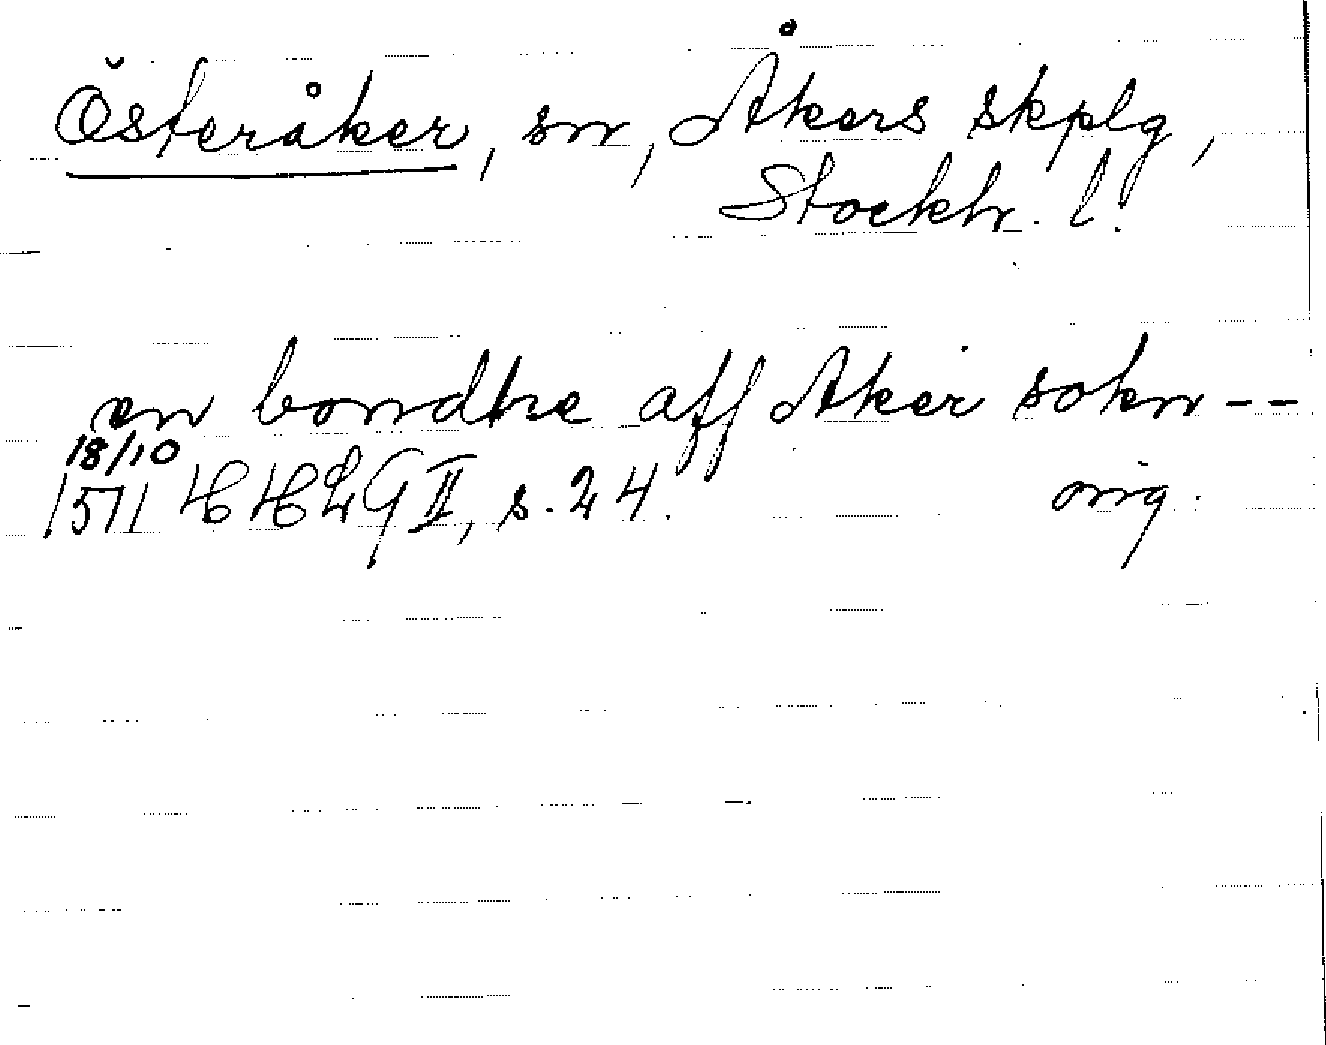 Österåker, sn, Åkers skplg,
Stockh. l.
en bondhe aff Aker sokn --
18/10
1571 HHLG II, s. 24. orig.